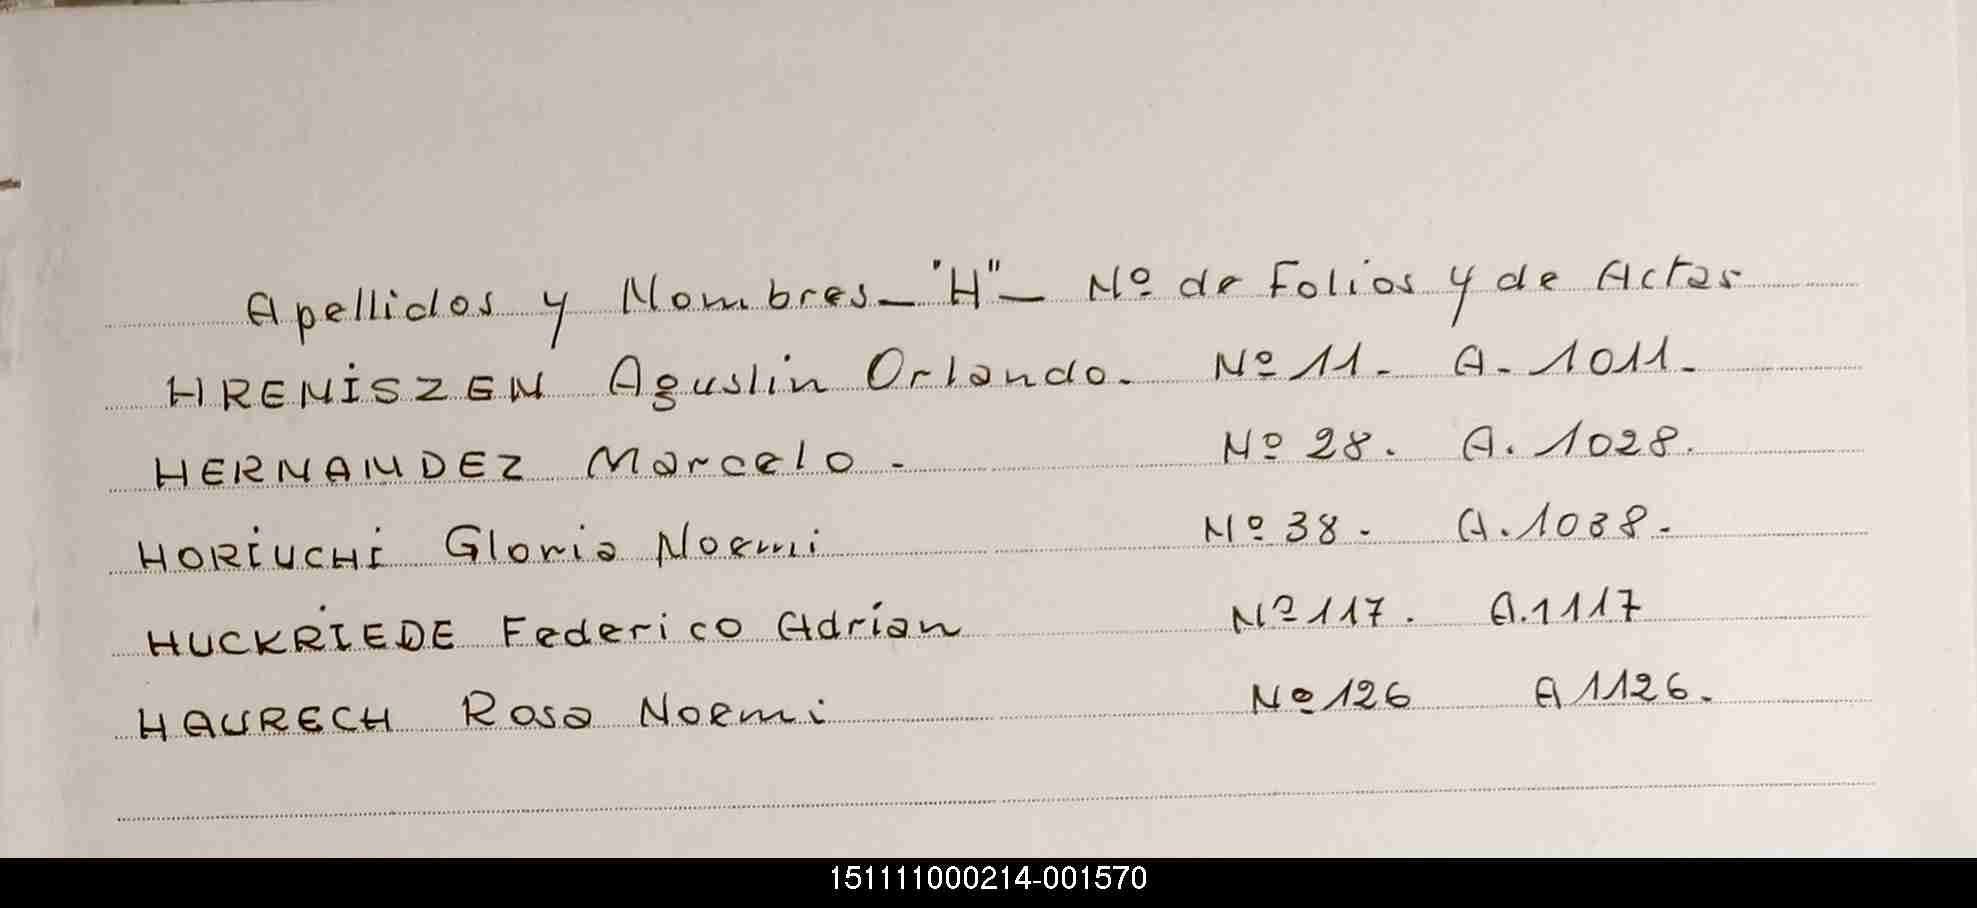 Apellidos y Nombres - "H" - Nº de Folios y de Actas
HRENISZEN Agustin Orlando. Nº 11. A. 1011.
HERNANDEZ Marcelo. Nº 28. A. 1028.
HORIUCHI Gloria Noemi Nº 38. A. 1038.
HUCKRIEDE Federico Adrían Nº 117. A. 1117
HAURECH Rosa Noemi Nº 126 A 1126.
151111000214-001570